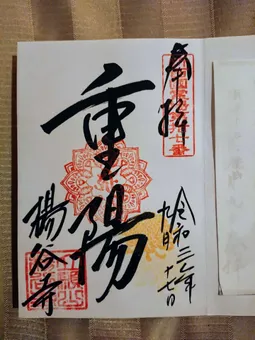 奉拝
重陽
令和三年
九月十七日
楊谷寺